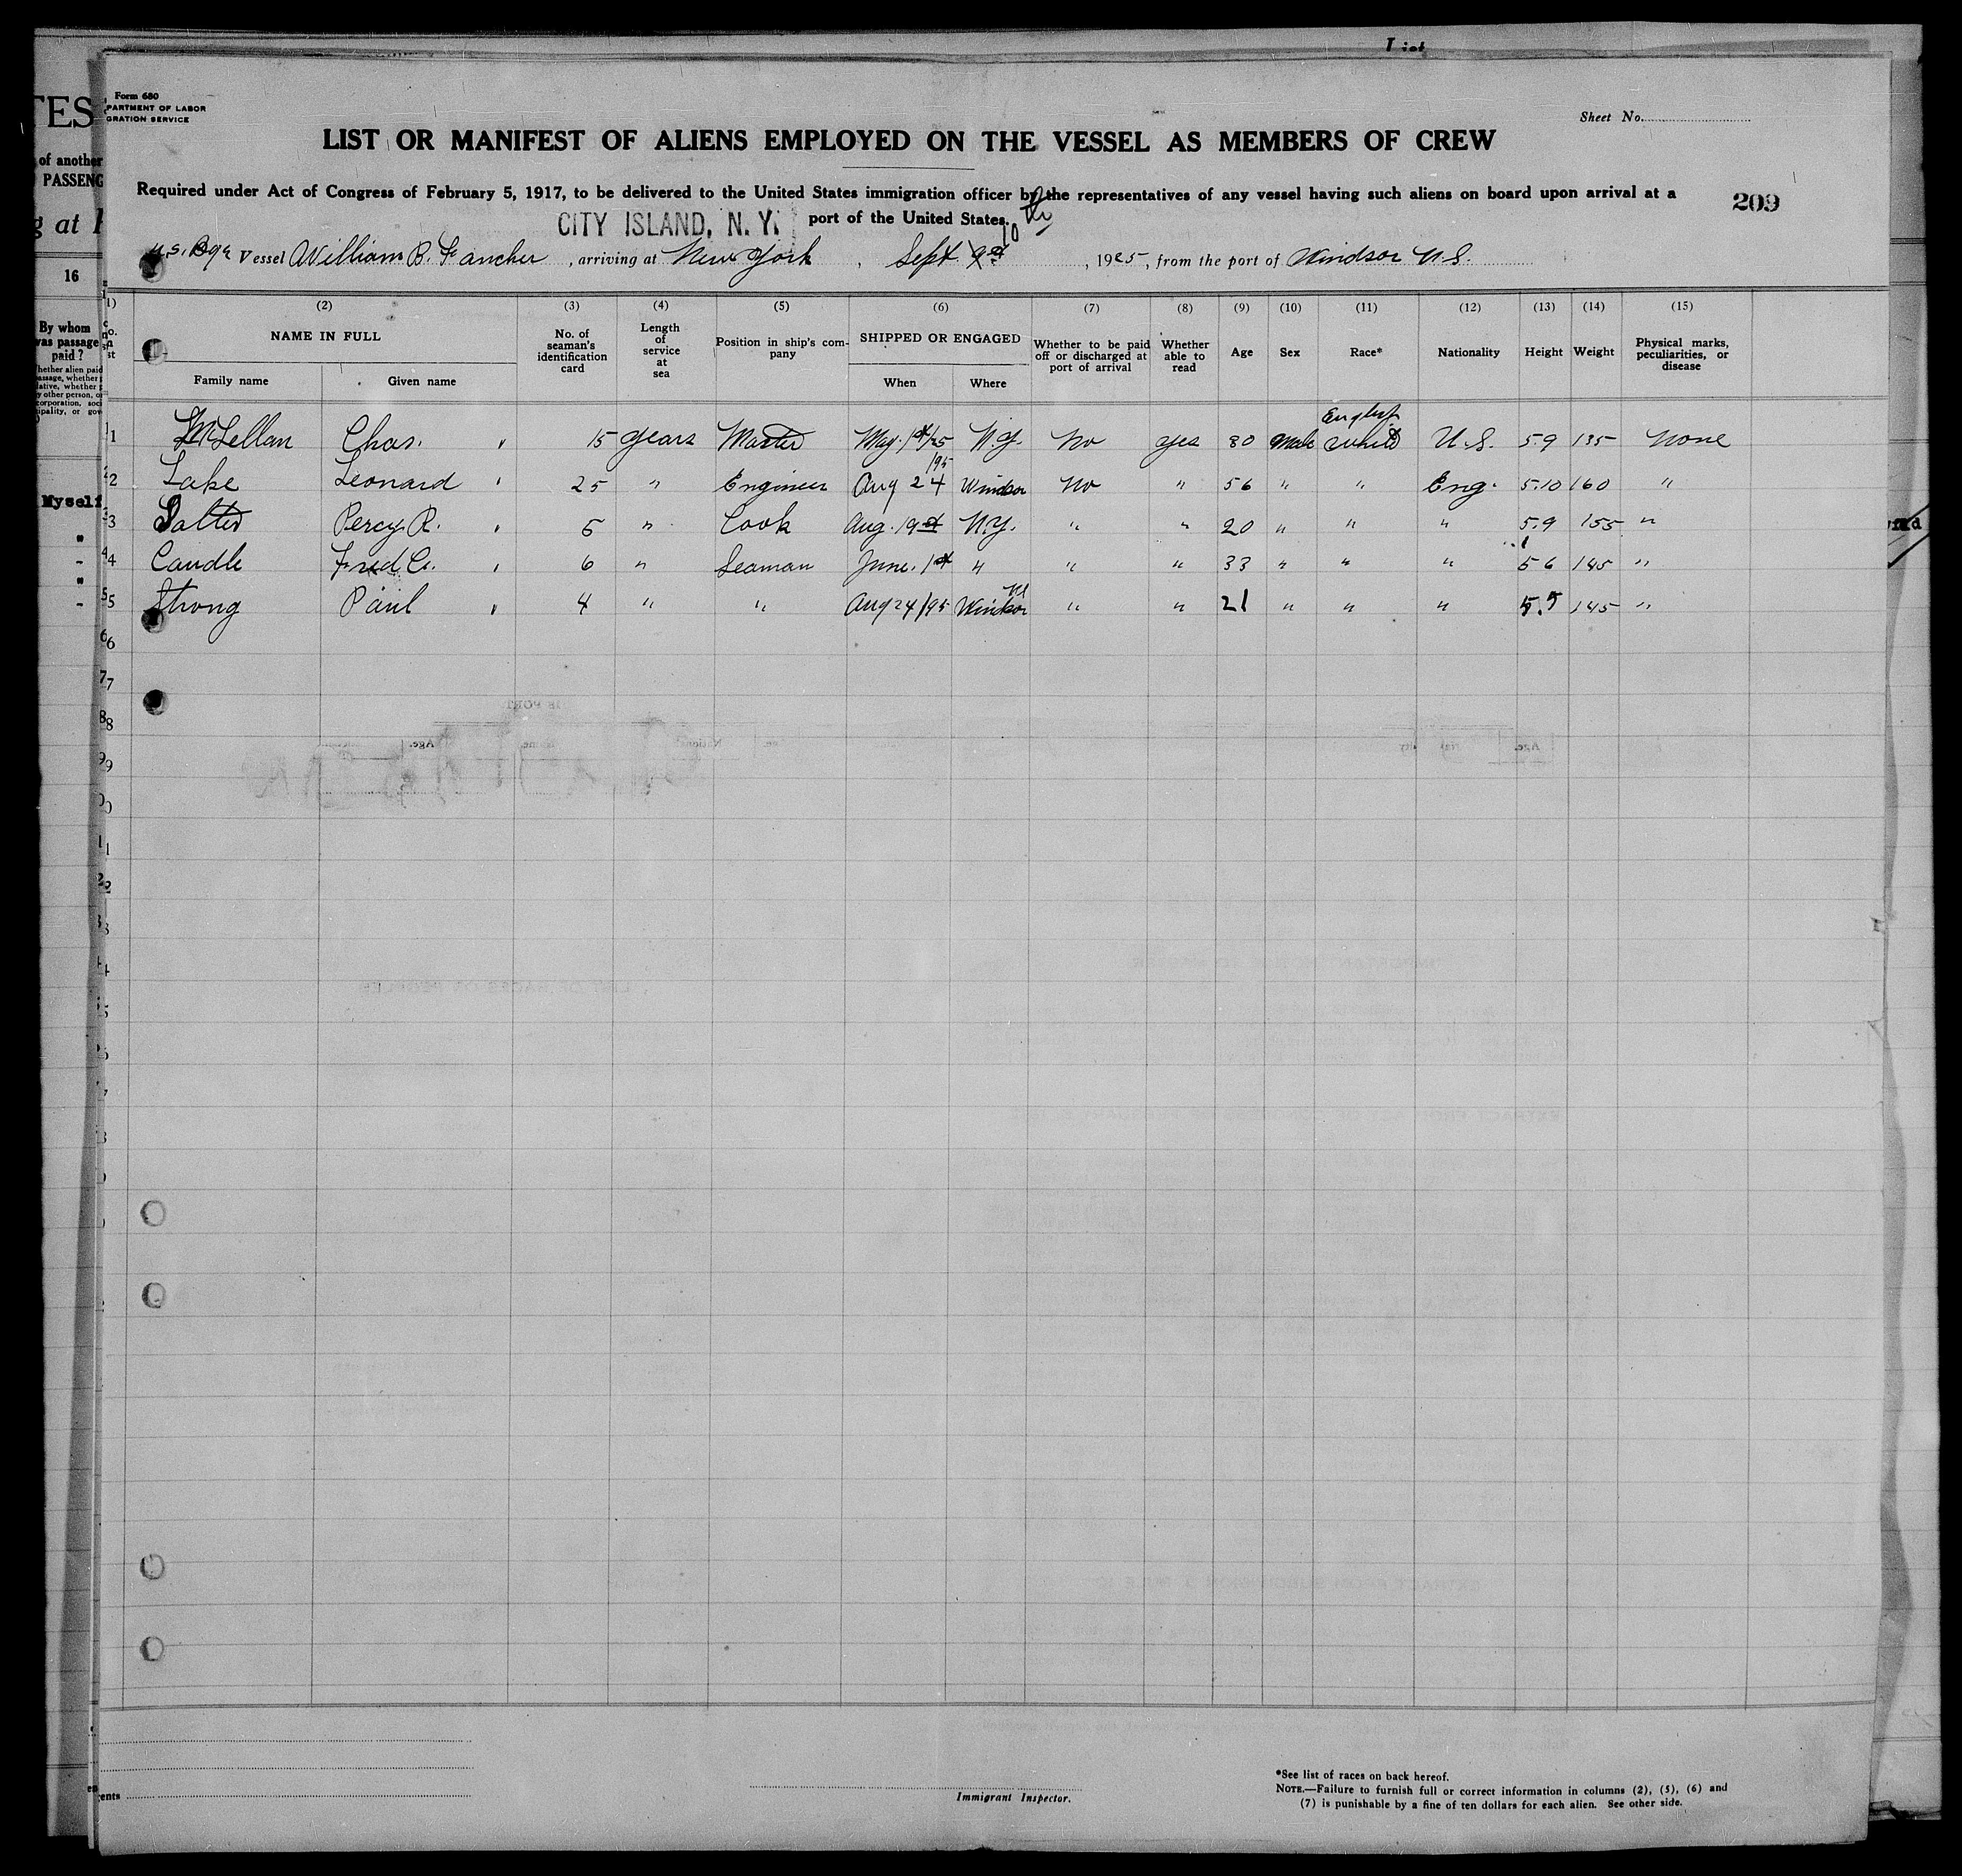 List
Form 680
PARTMENT OF LABOR
GRATION SERVICE
Sheet No.
LIST OR MANIFEST OF ALIENS EMPLOYED ON THE VESSEL AS MEMBERS OF CREW
Required under Act of Congress of February 5, 1917, to be delivered to the United States immigration officer by the representatives of any vessel having such aliens on board upon arrival at a
port of the United States.
209
CITY ISLAND, N. Y.
10
U.S. Bge Vessel William B. Fancher, arriving at New York, Sept. 9th, 1925, from the port of Windsor N.S.
(2) (3) (4) (5) (6) (7) (8) (9) (10) (11) (12) (13) (14) (15)
NAME IN FULL Family name Given name
No. of seaman's identification card
Length of service at sea
Position in ship's company
SHIPPED OR ENGAGED When Where
Whether to be paid off or discharged at port of arrival
Whether able to read
Age Sex Race* Nationality Height Weight
Physical marks, peculiarities, or disease
English
1 McLellan Chas. 15 years Master May. 1st/25 N.Y. No yes 30 Male White U.S. 5.9 135 None
2 Lake Leonard 25 " Engineer Aug 24 Windsor No " 56 " " Eng. 5.10 160 "
3 Salter Percy R. 5 " Cook Aug. 19th N.Y. " " 20 " " " 5.9 155 "
4 Caudle Fred C. 6 " Seaman June. 1st " " " 33 " " " 5 6 145 "
5 Strong Paul 4 " " Aug 24/25 Windsor " " 21 " " " 5.5 145 "
6
7
8
9
TES
of another
PASSENG
g at
16
By whom
was passage
paid?
Myself
Immigrant Inspector.
*See list of races on back hereof.
NOTE.—Failure to furnish full or correct information in columns (2), (5), (6) and
(7) is punishable by a fine of ten dollars for each alien. See other side.